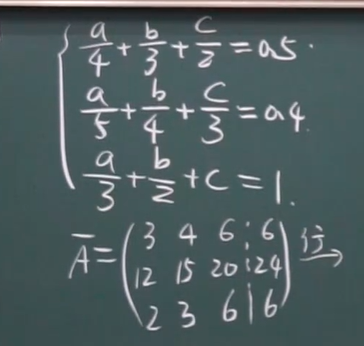 a/4 + b/3 + c/2 = 0.5.
a/5 + b/4 + c/3 = 0.4.
a/3 + b/2 + c = 1.
Ā = ( 3 4 6 | 6
12 15 20 | 24
2 3 6 | 6 ) 行→